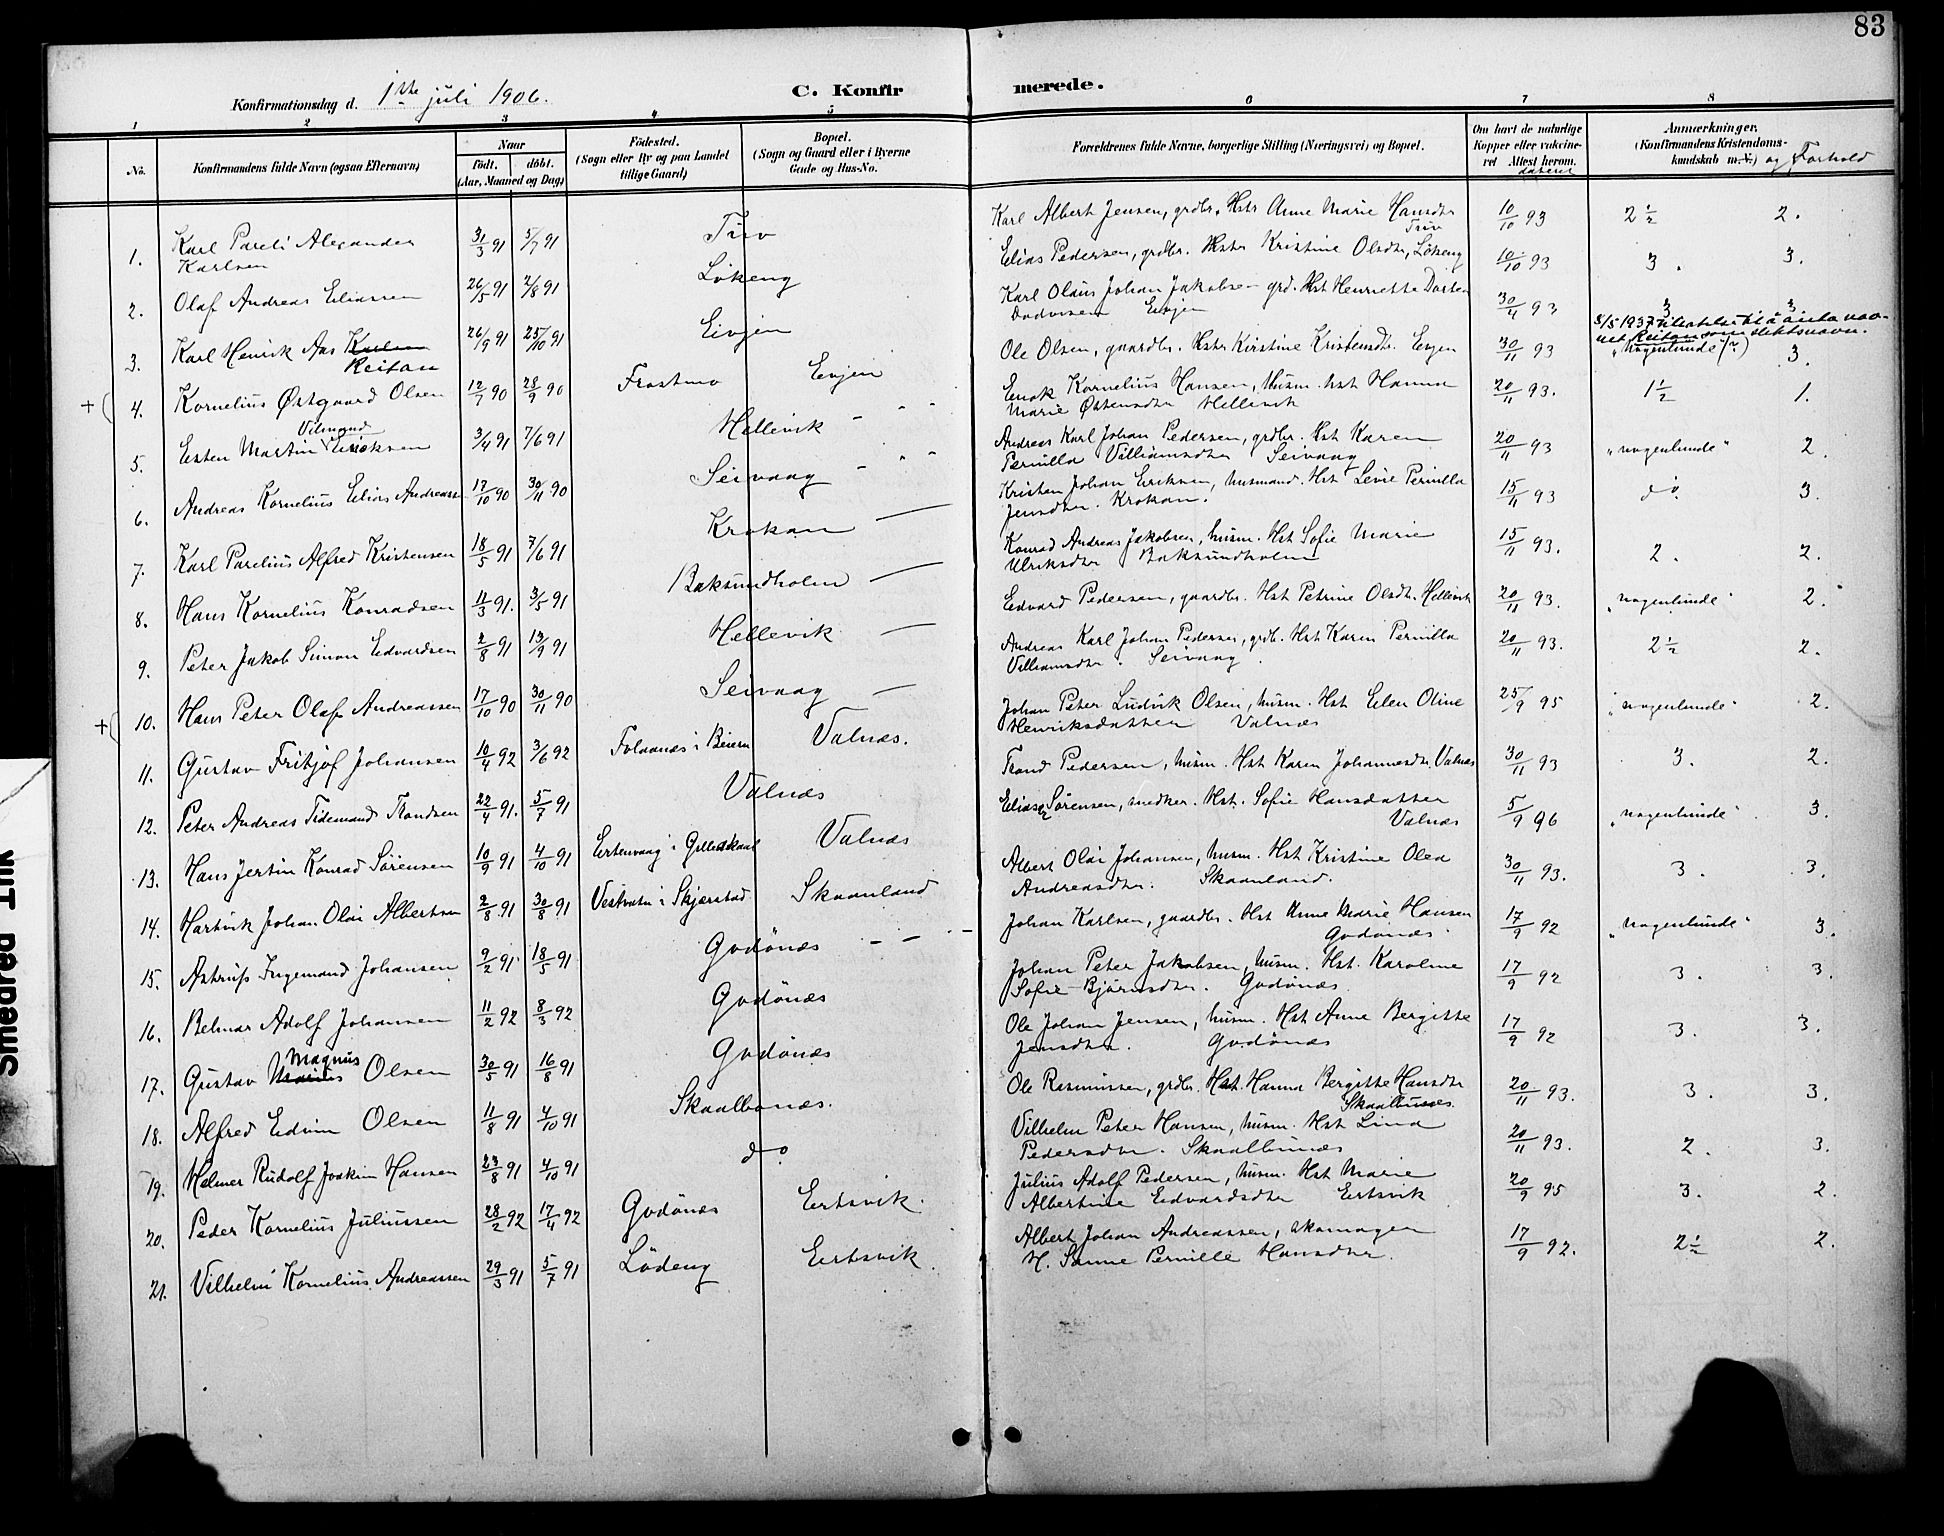 83
Konfirmationsdag d. 1ste juli 1906.
C. Konfir
merede.
1 2 3 4 5 6 7 8
No.
Konfirmandens fulde Navn (ogsaa Efternavn)
Naar
födt. döbt.
(Aar, Maaned og Dag)
Födested.
(Sogn eller By og paa Landet
tillige Gaard)
Bopæl.
(Sogn og Gaard eller i Byerne
Gade og Hus-No.
Forældrenes fulde Navne, borgerlige Stilling (Næringsvei) og Bopæl.
Om havt de naturlige
Kopper eller vakcine-
ret Attest herom.
dateret
Anmærkninger.
(Konfirmandens Kristendoms-
kundskab m.v.) og Forhold
1. Karl Pareli Alexander Karlsen 31/3 91 5/7 91 Tuv
Karl Albert Jensen, grdbr. Hstr Anne Marie Hansdtr Tuv 10/10 93 2 1/2 2.
2. Olaf Andreas Eliassen 26/5 91 2/8 91 Lökeng
Elias Pedersen, grdbr. Hstr Kristine Olsdtr, Lökeng 10/10 93 3. 3.
3. Karl Henrik Aas Karlsen Reitan 26/9 91 25/10 91 Eivjen
Karl Olaus Johan Jakobsen grd. Hst Henriette Dortea Evjen 30/4 93 3 3
8/5 1937 Reitan som slektsnavn.
+ 4. Kornelius Østgaard Olsen 12/7 90 28/9 90 Frostmo Evjen
Ole Olsen, gaardbr. Hstr Kirstine Kristensdtr. Evjen 30/11 93 "nogenlunde" (?) 3.
5. Esten Martin Vilmand Eriksen 3/4 91 7/6 91 Hellevik - " "
Enok Kornelius Hansen, husm. Hst Hanna
Marie Østensdtr Hellevik 20/11 93. 1 1/2 1.
6. Andreas Kornelius Elias Andreass 17/10 90 30/11 90 Seivaag - " "
Andreas Karl Johan Pedersen, grdbr. Hst Karen
Pernilla Villiamsdtr Seivaag 20/11 93 "nogenlunde" 2.
7. Karl Parelius Alfred Kristensen 18/5 91 7/6 91 Krokan —
Kristen Johan Eriksen, husmand. Hst Levie Pernilla
Jensdtr. Krokan. 15/11 93 do. 3.
8. Hans Kornelius Konradsen 11/3 91. 3/5 91 Baksundholm —
Konrad Andreas Jakobsen, husm. Hst Sofie Marie
Ulriksdtr Baksundholm 15/11 93. 2. 2.
9. Peter Jakob Simon Edvardsen 2/8 91 13/9 91 Hellevik —
Edvard Pedersen, gaardbr. Hst Petrine Olsdtr. Hellevik 20/11 93. "nogenlunde" 2.
+ 10. Hans Peter Olaf Andreassen 17/10 90 30/11 90 Seivaag —
Andreas Karl Johan Pedersen, grdb. Hst Karen Pernilla
Villiamsdtr. Seivaag. 20/11 93. 2 1/2 2.
11. Gustav Fritjof Johansen 10/4 92 3/6 92 i Beiern Valnæs.
Johan Peter Ludvik Olsen, husm. Hst Elen Oline
Henriksdatter Valnæs 25/9 95 "nogenlunde" 2.
12. Peter Andreas Tidemand Trondsen 22/4 91. 5/7 91 Valnæs
Trond Pedersen, husm. Hst Karen Johannesdtr. Valnæs 30/11 93 3. 2.
13. Hans Jertin Konrad Sørensen 10/9 91 4/10 91 Ertenvaag i Gilleskaal Valnæs
Elias Sørensen, snedker. Hst. Sofie Hansdatter
Valnæs 5/9 96 "nogenlunde" 3.
14. Hartvik Johan Olai Albertsen 2/8 91 30/8 91 Vestvatn i Skjerstad Skaanland
Albert Olai Johansen, husm. Hst Kristine Olea
Andreasdtr. Skaanland. 30/11 93. 3. 3.
15. Astrup Ingemand Johansen 9/2 91 18/5 91 Godönæs - - -
Johan Karlsen, gaardbr. Hst Anne Marie Hansen
Godönæs 17/9 92 "nogenlunde" 3.
16. Belmar Adolf Johansen 11/2 92 8/3 92 Godönæs
Johan Peter Jakobsen, husm. Hst. Karoline
Sofie Bjørnsdtr. Godönæs. 17/9 92 3. 3.
17. Gustav Marius Magnus Olsen 30/5 91 16/8 91 Godönæs
Ole Johan Jensen, husm. Hst Anne Bergitte
Jensdtr. Godönæs 17/9 92 3. 3.
18. Alfred Edvin Olsen 11/8 91 4/10 91 Skaalbonæs.
Ole Rasmussen, grdbr. Hst. Hanna Bergitte Hansdtr
Skaalbunæs. 20/11 93. 3. 3.
19. Helmer Rudolf Joakim Hansen 23/8 91 4/10 91 do
Vilhelm Peter Hansen, husm. Hst Lina
Pedersdtr. Skaalbunæs 20/11 93. 2. 3.
20. Peder Kornelius Juliussen 28/2 92 17/4 92 Godönæs Ertsvik.
Julius Adolf Pedersen, husm. Hst Marie
Albertine Edvardsdtr Ertsvik 20/9 95 3. 2.
21. Vilhelm Kornelius Andreassen 29/3 91 5/7 91 Löding Ertsvik.
Albert Johan Andreassen, skomager
H. Sanne Pernille Hansdtr. 17/9 92. 2 1/2 2.